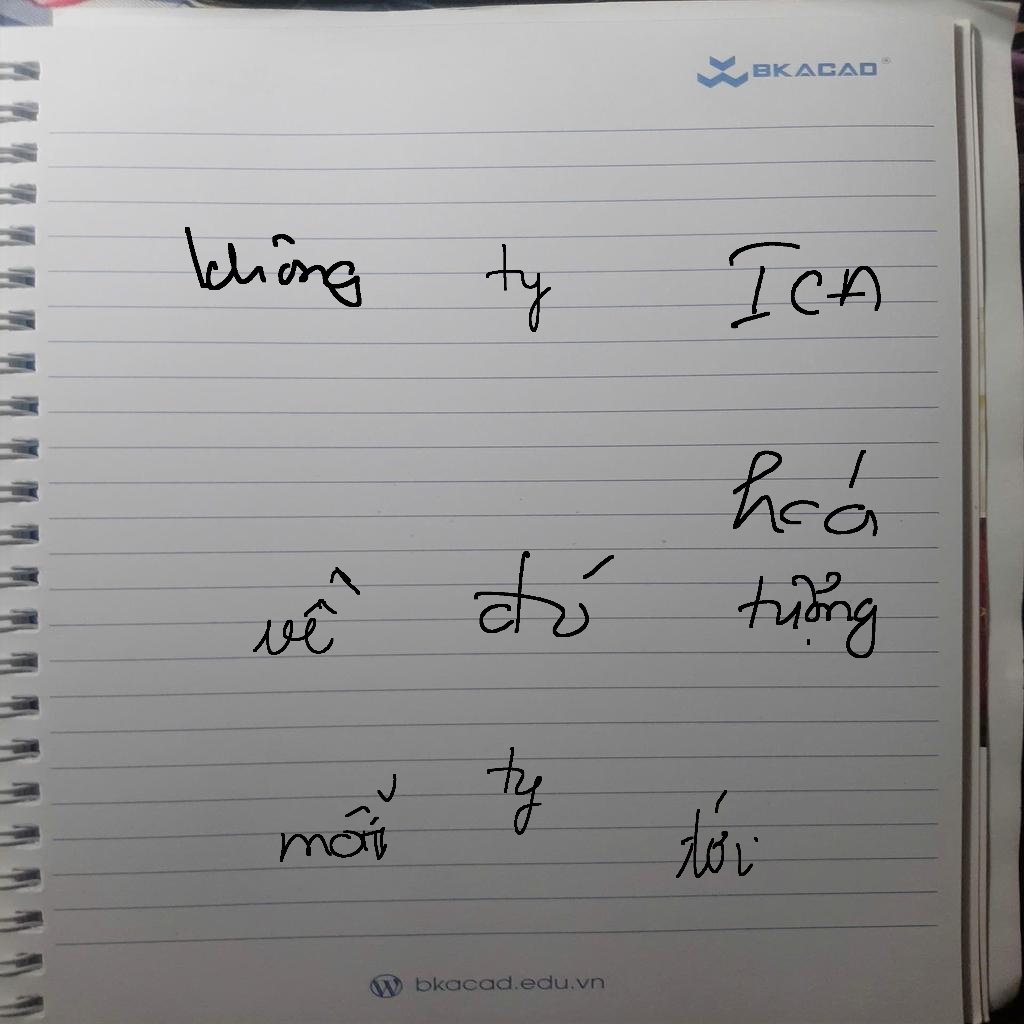 BKACAD®
không ty ICA
hoá
về đứ tượng
mỗi ty tới
bkacad.edu.vn